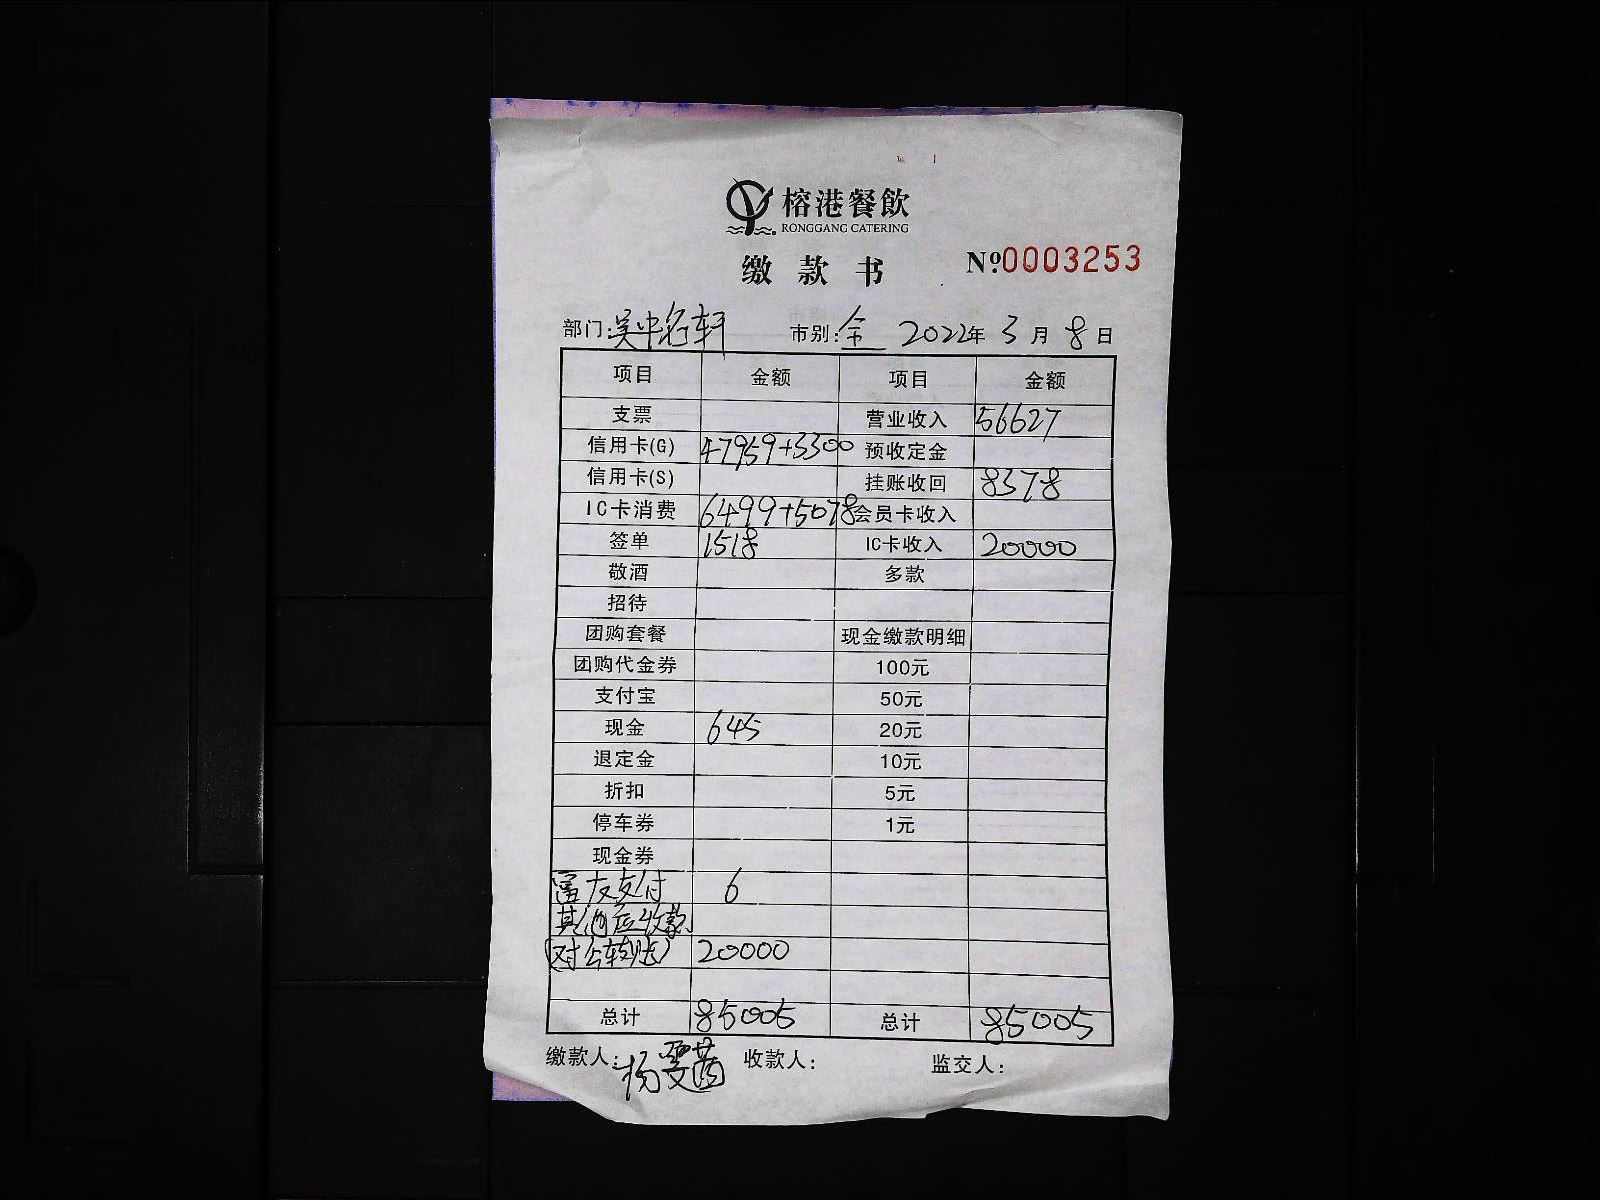 榕港餐飲
RONGGANG CATERING
缴款书 №:0003253
部门:吴中名轩 市别:全 2022年 3月 8日
项目 金额 项目 金额
支票 营业收入 56627
信用卡(G) 47959+3300 预收定金
信用卡(S) 挂账收回 8378
IC卡消费 6499+5078 会员卡收入
签单 1518 IC卡收入 20000
敬酒 多款
招待
团购套餐 现金缴款明细
团购代金券 100元
支付宝 50元
现金 645 20元
退定金 10元
折扣 5元
停车券 1元
现金券
富友支付 6
其他应收款
(对公转账) 20000
总计 85005 总计 85005
缴款人:杨 收款人: 监交人: